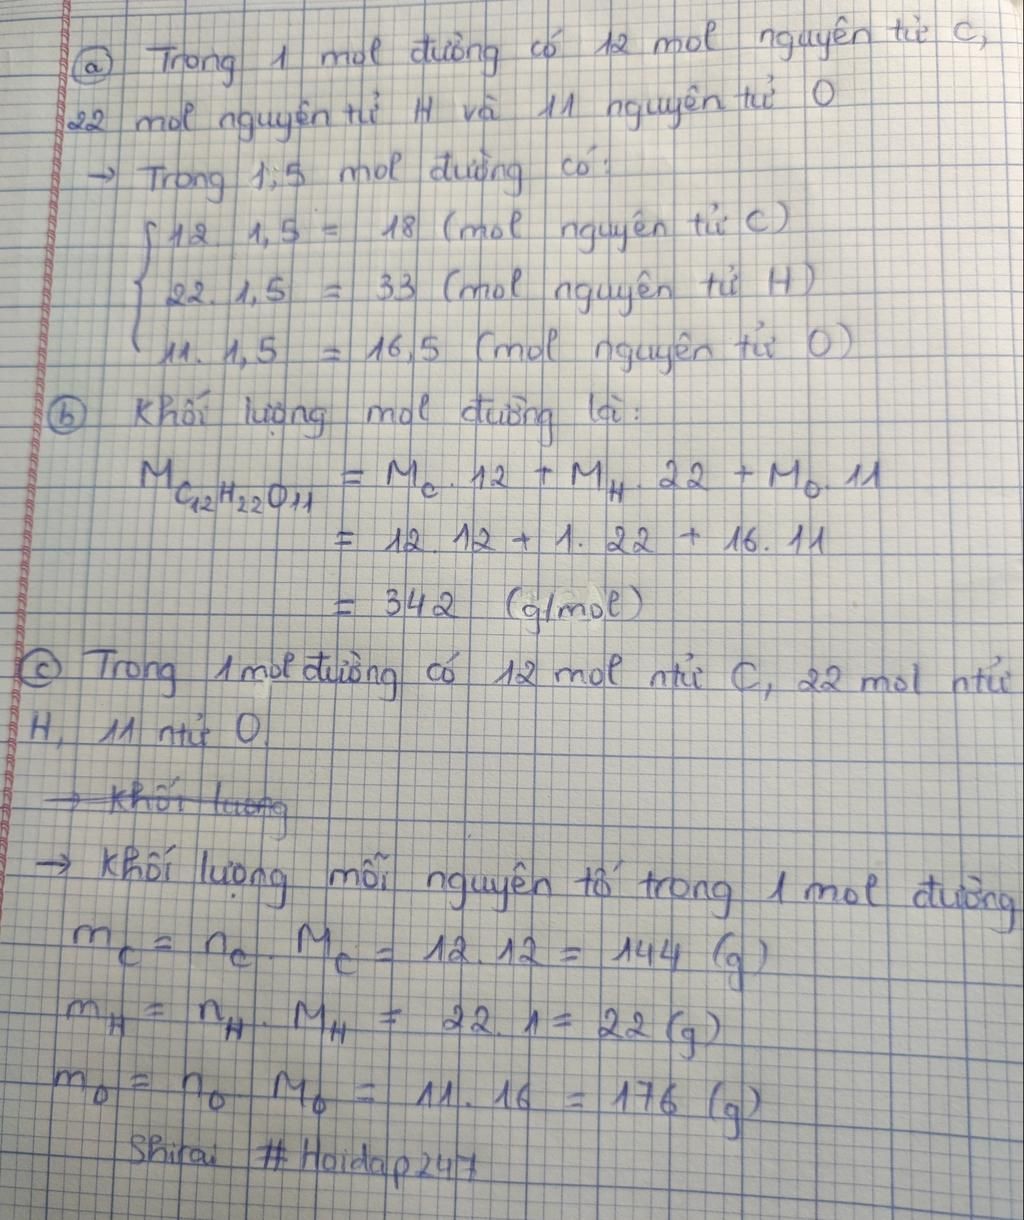 a Trong 1 mol đường có 12 mol nguyên tử C,
22 mol nguyên tử H và 11 nguyên tử O
→ Trong 1,5 mol đường có:
12 1,5 = 18 (mol nguyên tử C)
22. 1,5 = 33 (mol nguyên tử H)
11. 1,5 = 16,5 (mol nguyên tử O)
b Khối lượng mol đường là:
M C12H22O11 = Mc. 12 + MH. 22 + Mo. 11
= 12. 12 + 1. 22 + 16. 11
= 342 (g/mol)
c Trong 1 mol đường có 12 mol ntử C, 22 mol ntử
H, 11 ntử O.
→ Khối lượng
→ Khối lượng mỗi nguyên tố trong 1 mol đường
mc = nc. Mc = 12. 12 = 144 (g)
mH = nH. MH = 22. 1 = 22 (g)
mo = no Mo = 11. 16 = 176 (g)
Shirai #Hoidap247